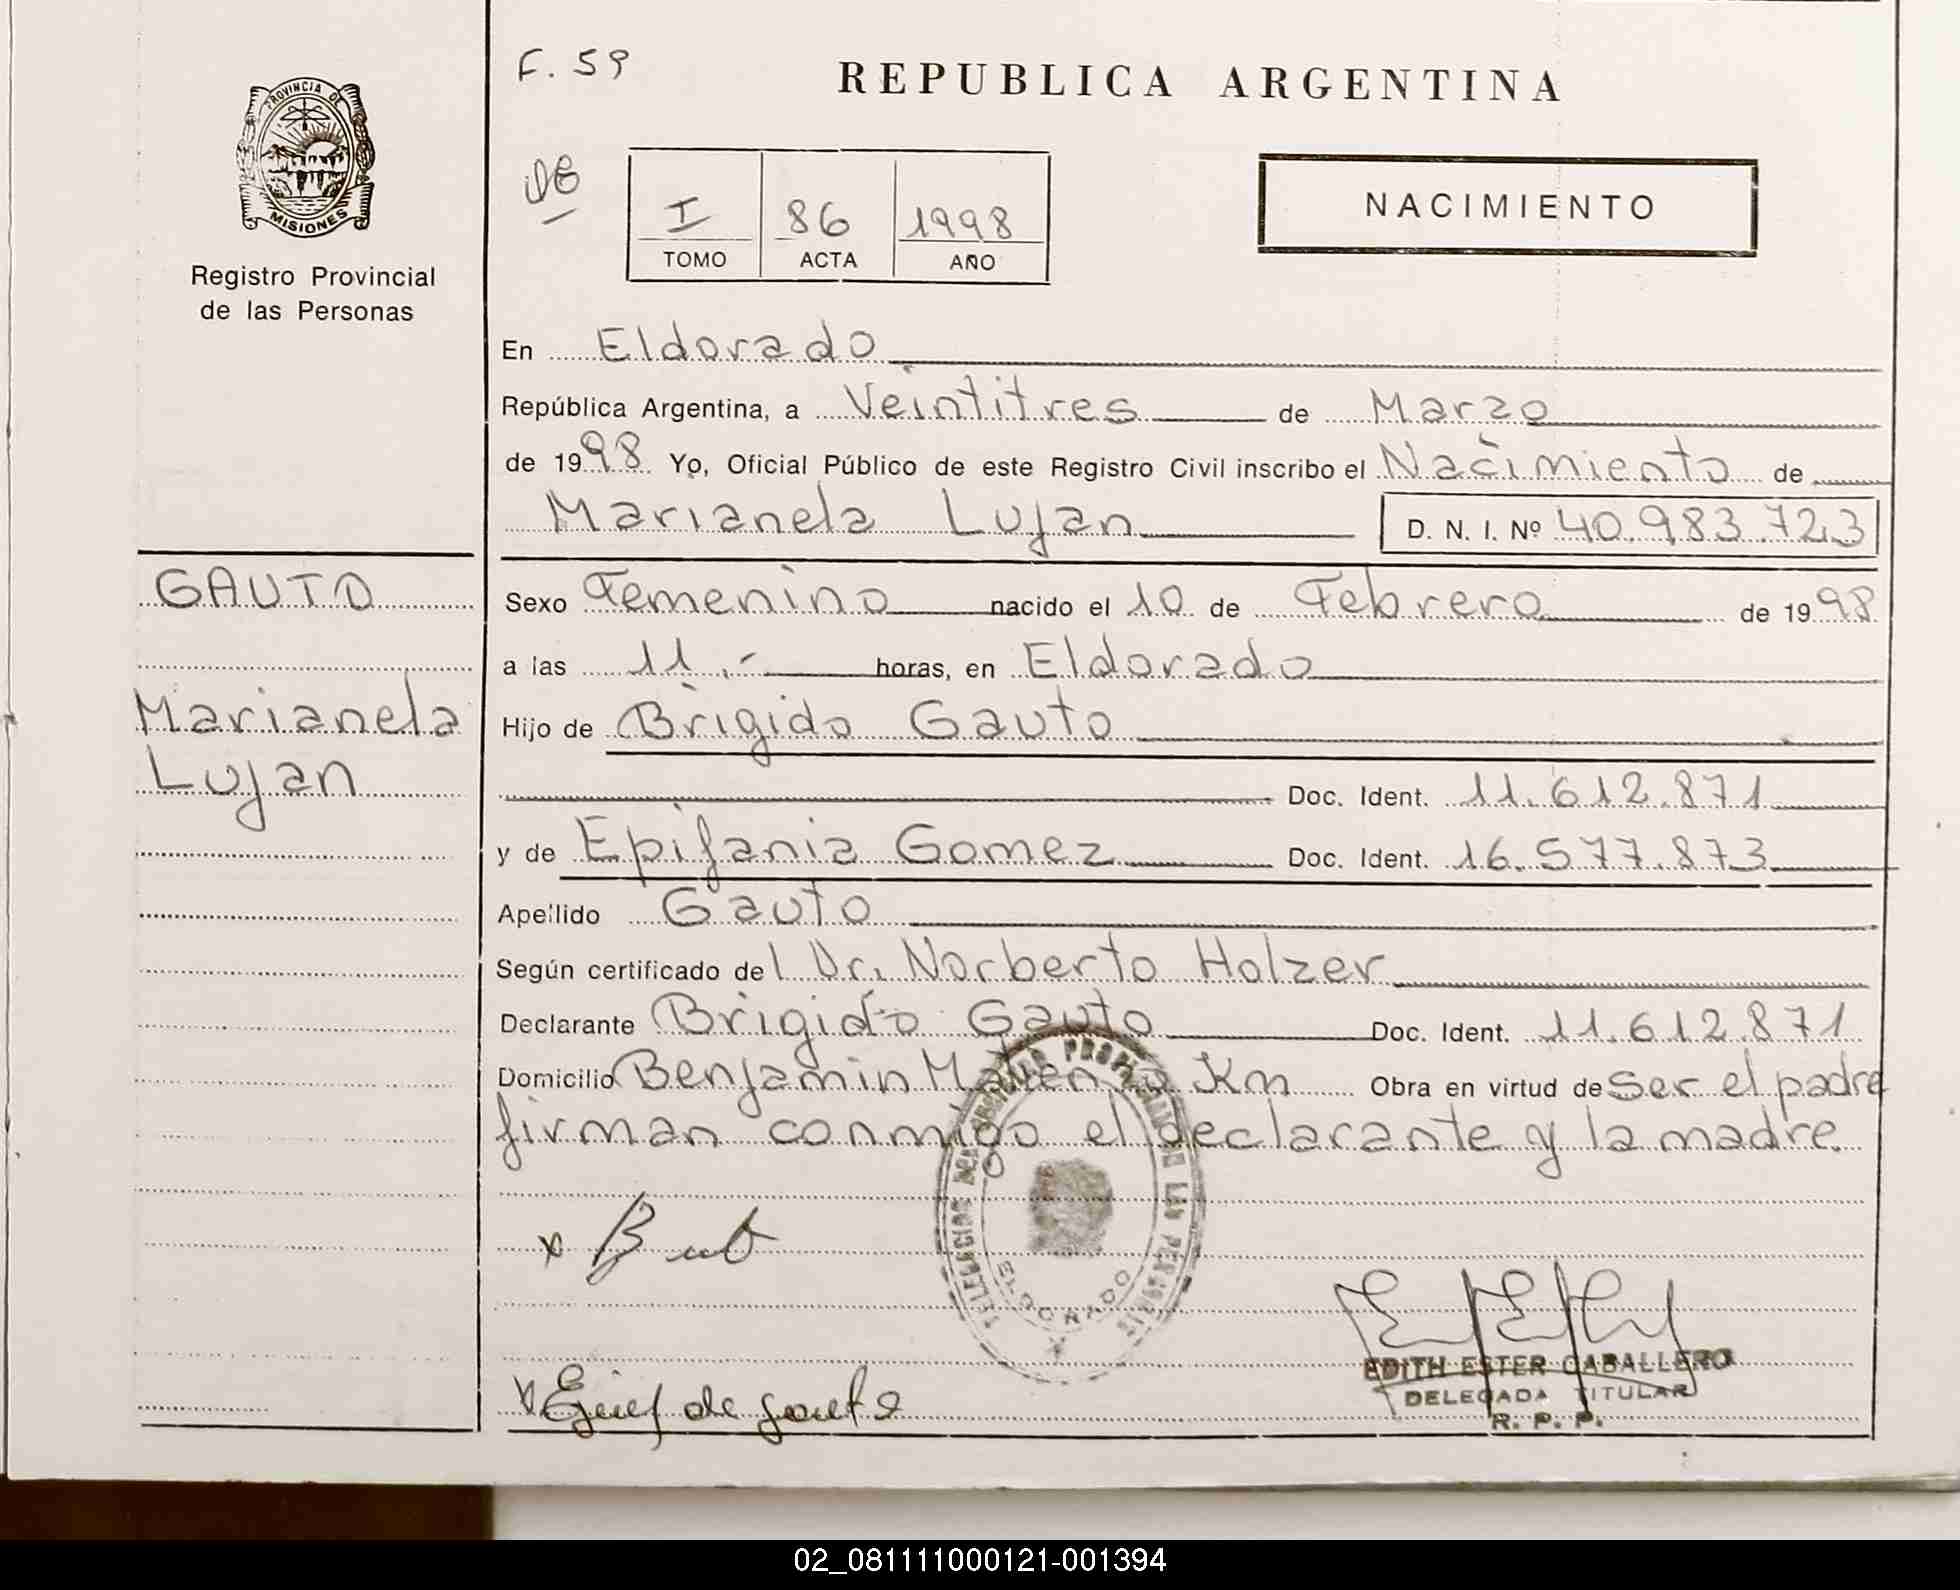 F. 59
REPUBLICA ARGENTINA
PROVINCIA DE
MISIONES
Registro Provincial
de las Personas
I 86 1998
TOMO ACTA AÑO
NACIMIENTO
En Eldorado
República Argentina, a Veintitres de Marzo
de 1998 Yo, Oficial Público de este Registro Civil inscribo el Nacimiento de
Marianela Lujan D. N. I. Nº 40.983.723
GAUTO
Marianela
Lujan
Sexo Femenino nacido el 10 de Febrero de 1998
a las 11.- horas, en Eldorado
Hijo de Brigido Gauto
Doc. Ident. 11.612.871
y de Epifania Gomez Doc. Ident. 16.577.873
Apellido Gauto
Según certificado del Dr. Norberto Holzer
Declarante Brigido Gauto Doc. Ident. 11.612.871
Domicilio Benjamin Km Obra en virtud de ser el padre
firman conmigo el declarante y la madre.
DE LAS PERSONAS
ELDORADO
de Gauto
EDITH ESTER CABALLERO
DELEGADA TITULAR
R. P. P.
02_081111000121-001394